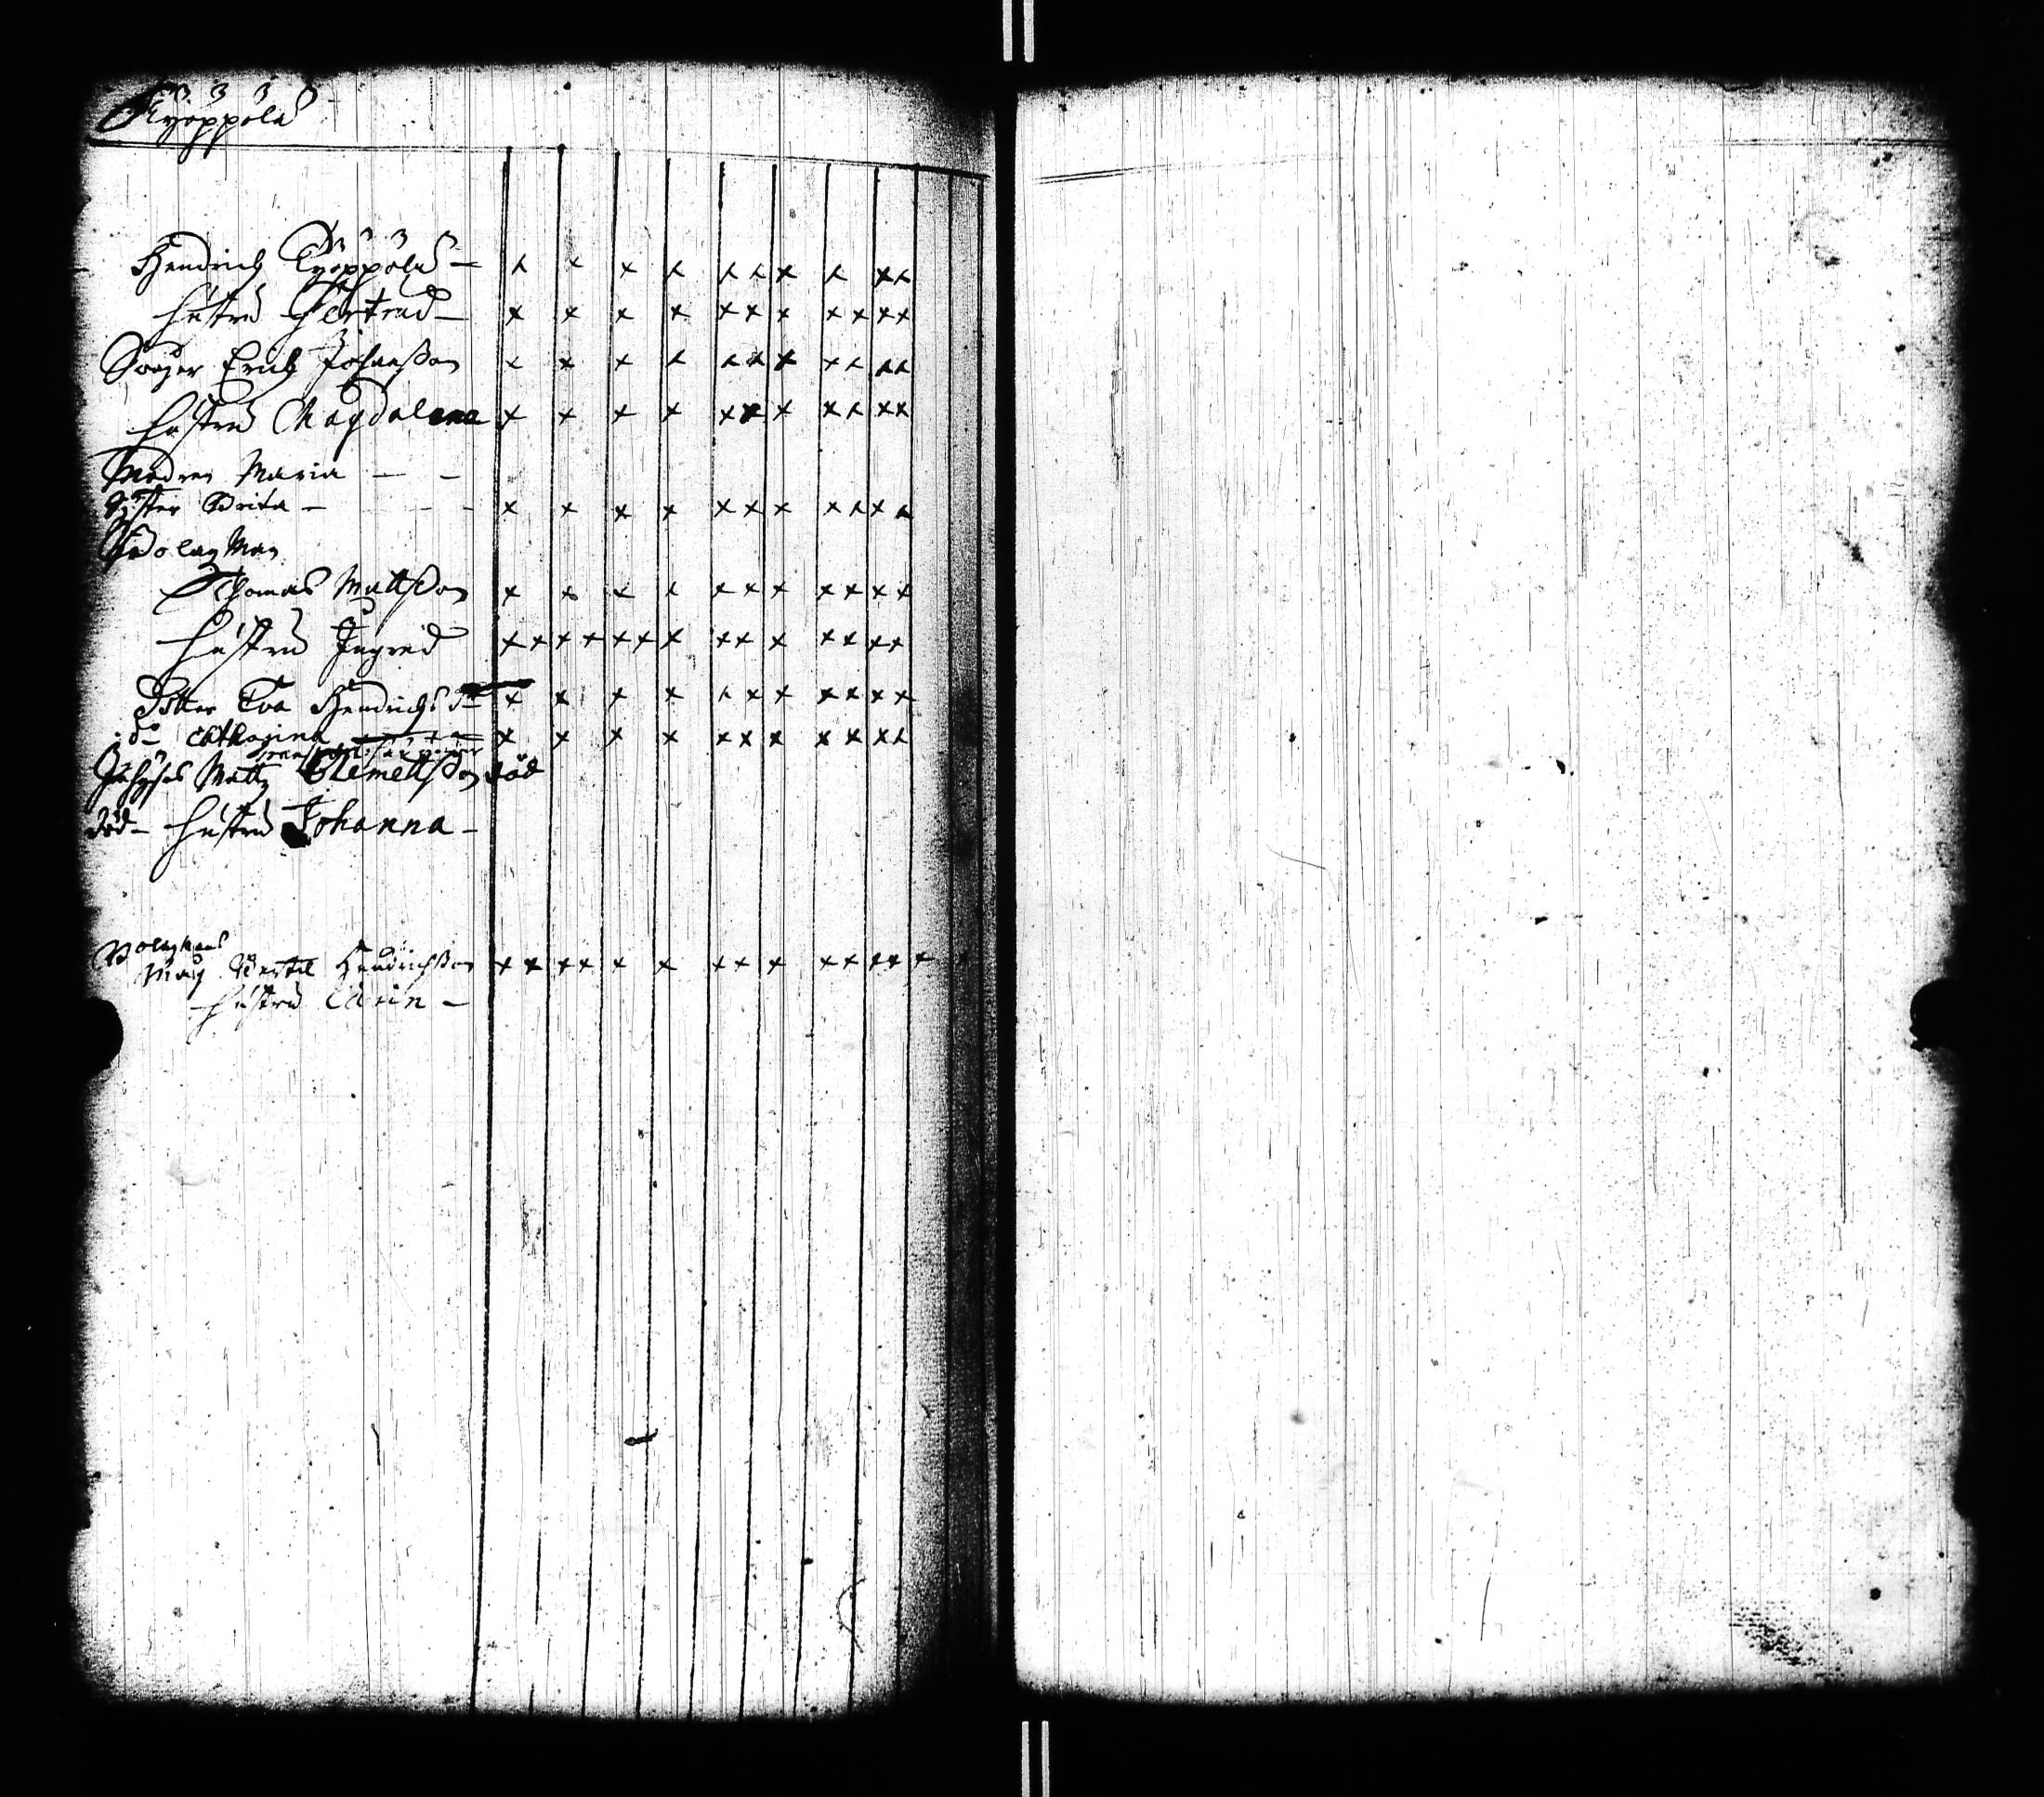 Työppölä
Hendrich Työppölä — x x x x x x x x x x
hustru Gertrud — x x x x x x x x x x x
Swåger Erich Johansson x x x x x x x x x x x
hustru Magdalena x x x x x x x x x x x
Modren Maria — —
Syster Brita — — — x x x x x x x x x x x
Bolagzman
Thomas Mattsson x x x x x x x x x x x
hustru Ingrid x x x x x x x x x x x x x x
Dotter Eva Hendrichs dr x x x x x x x x x x x
do Catharina x x x x x x x x x x x
Inhyses Matts Clemettsson död
död — hustru Johanna —
Bolagzman
Bertil Hendrichsson x x x x x x x x x x x x x x
hustru Carin —